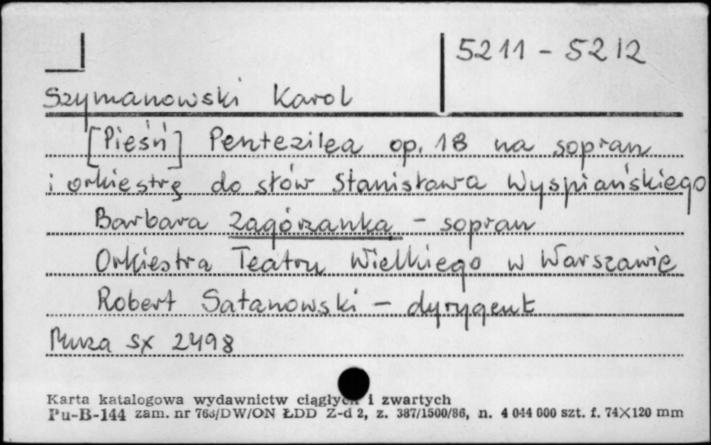 5211 - 5212
Szymanowski Karol
[Pieśń] Pentezilea op. 18 na sopran
i orkiestrę do słów Stanisława Wyspiańskiego
Barbara Zagórzanka - sopran
Orkiestra Teatru Wielkiego w Warszawie
Robert Satanowski - dyrygent
Muza SX 2498
Karta katalogowa wydawnictw ciągłych i zwartych
Pu-B-144 zam. nr 763/DW/ON ŁDD Z-d 2, z. 387/1500/86, n. 4 044 000 szt. f. 74×120 mm